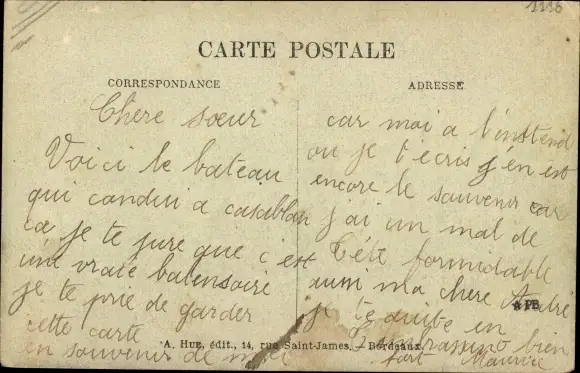 1116
CARTE POSTALE
CORRESPONDANCE
Chere sœur
Voici le bateau
qui candui a casablan
ca je te jure que c'est
une vraie balensoire
je te prie de garder
cette carte
en souvenir de moi
ADRESSE
car moi a l'instend
ou je t'ecris j'en est
encore le souvenir car
j'ai un mal de
tête formidable
aussi ma chere Andre
je te quite en
t'embrassant bien
fort Maurice
PB
A. HUE, édit., 14, rue Saint-James. — Bordeaux